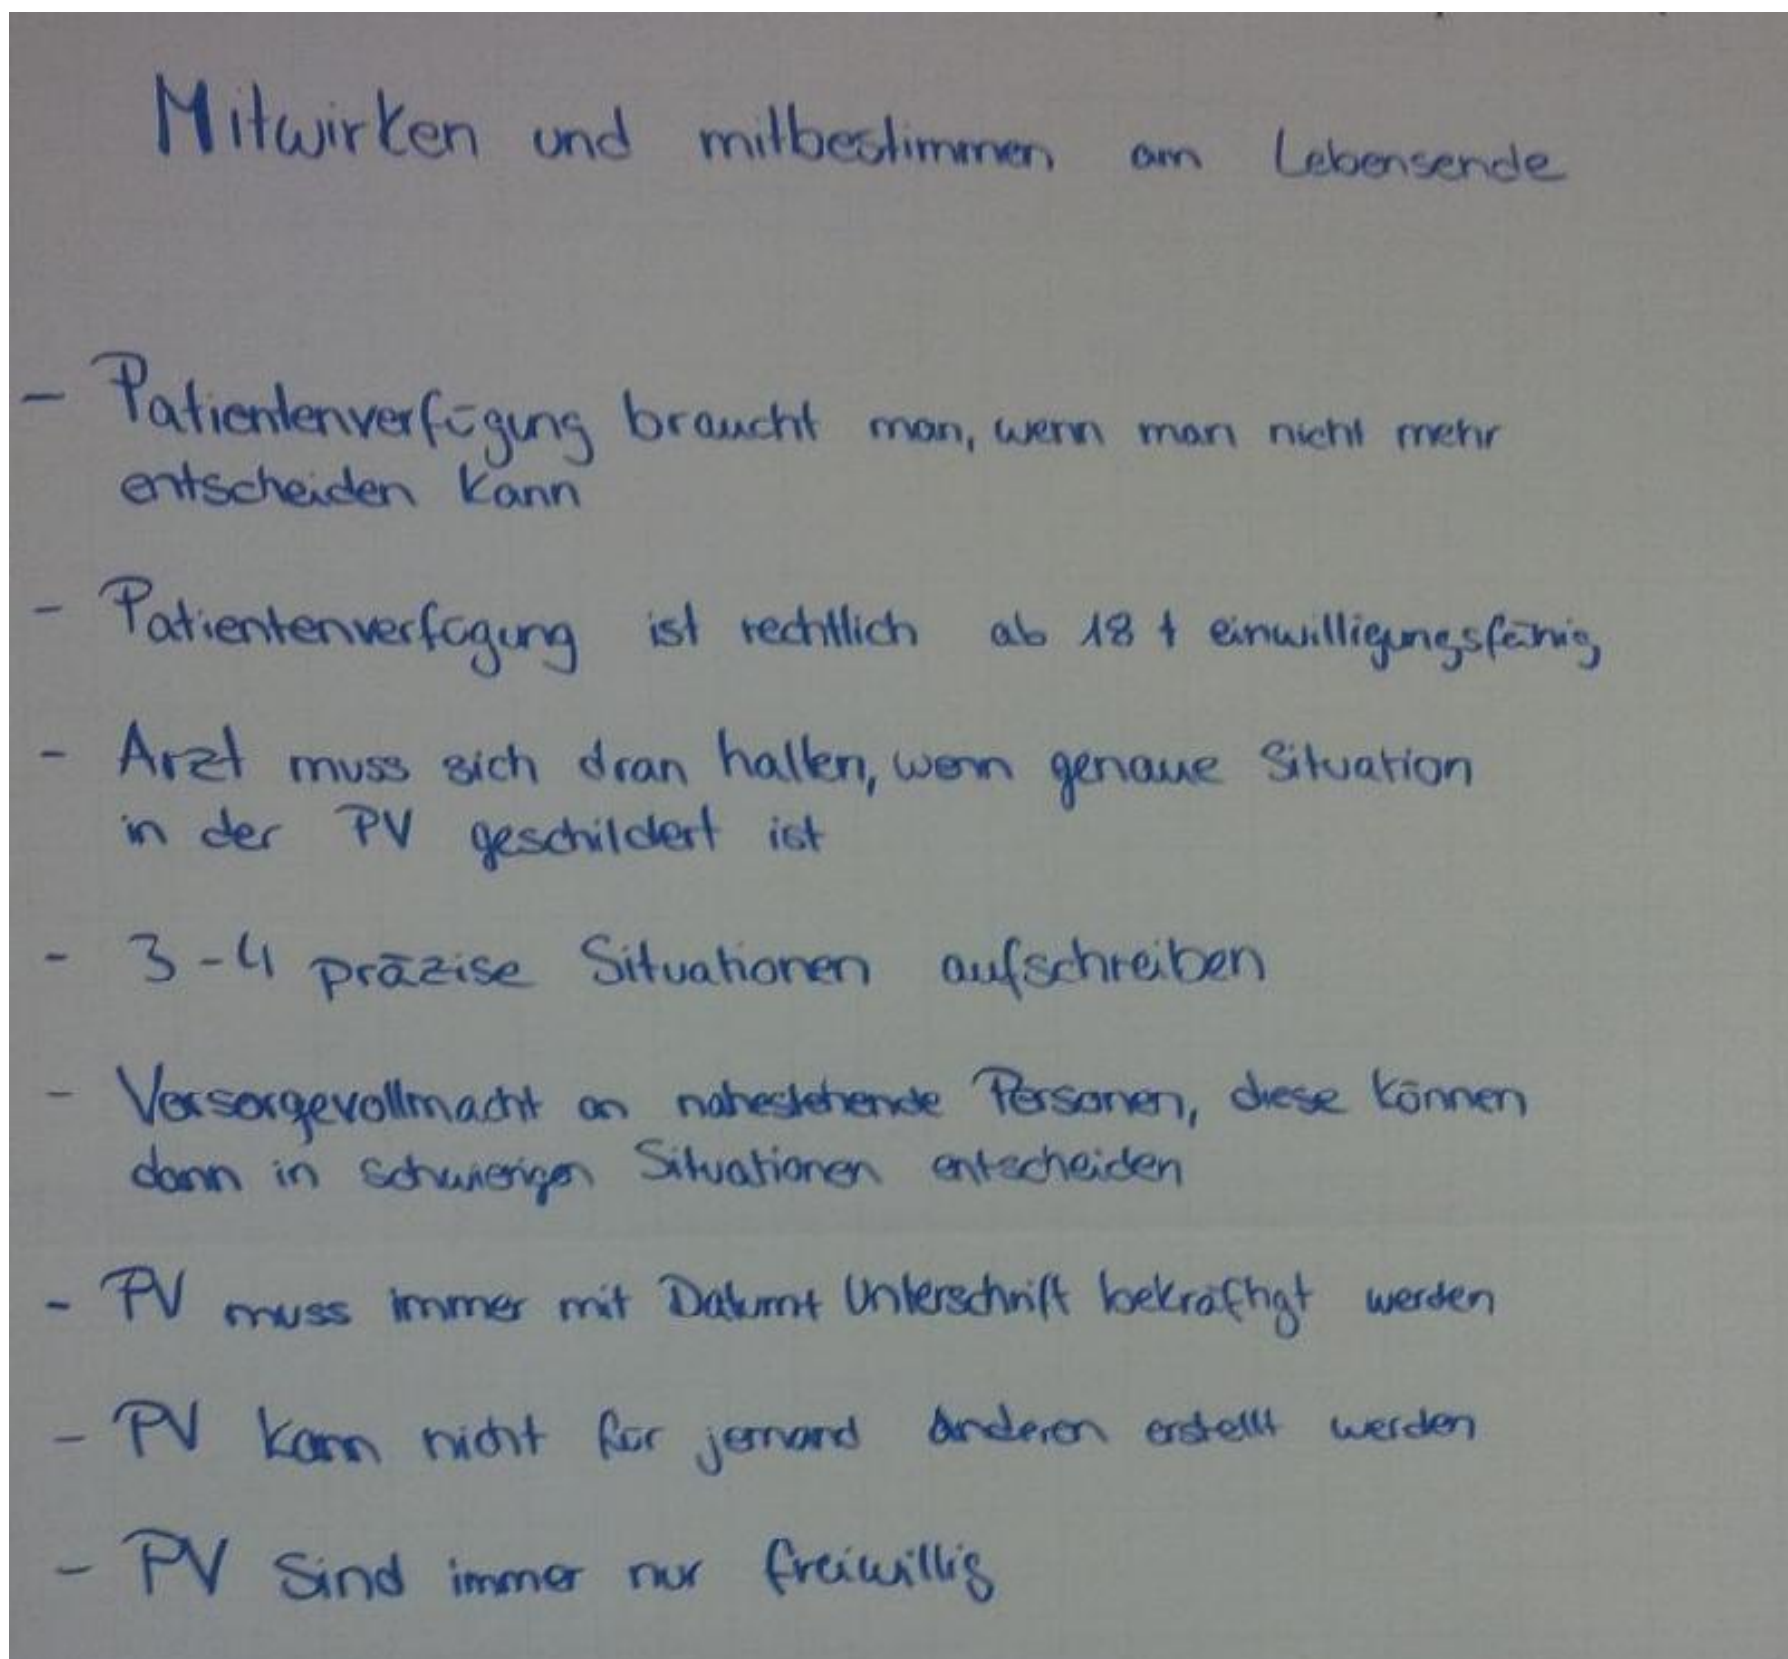 Mitwirken und mitbestimmen am Lebensende
- Patientenverfügung braucht man, wenn man nicht mehr
entscheiden kann
- Patientenverfügung ist rechtlich ab 18 + einwilligungsfähig
- Arzt muss sich dran halten, wenn genaue Situation
in der PV geschildert ist
- 3-4 präzise Situationen aufschreiben
- Vorsorgevollmacht an nahestehende Personen, diese können
dann in schwierigen Situationen entscheiden
- PV muss immer mit Datum + Unterschrift bekräftigt werden
- PV kann nicht für jemand Anderen erstellt werden
- PV Sind immer nur freiwillig